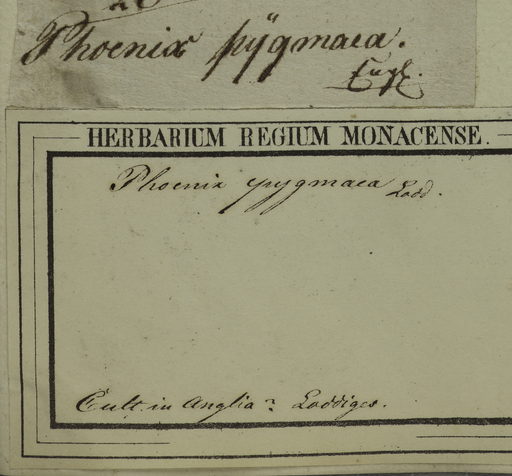 Phoenix pÿgmaea.
Engl.
HERBARIUM REGIUM MONACENSE.
Phoenix pygmaea Lodd.
Cult. in Anglia? Loddiges.